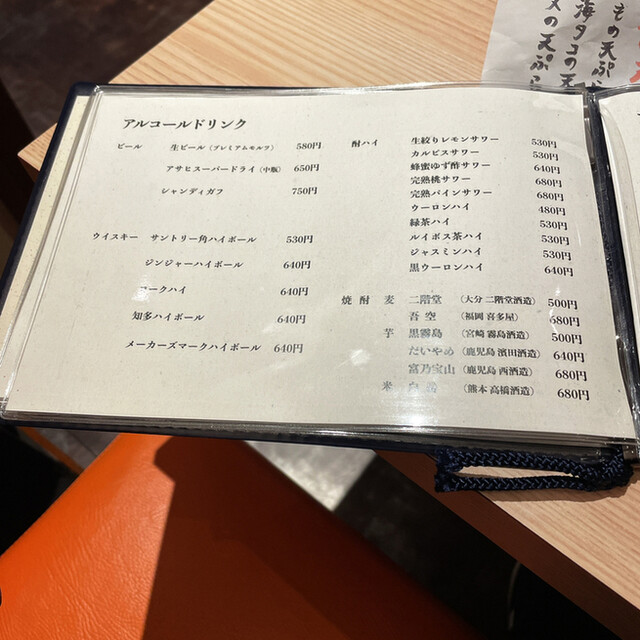 アルコールドリンク
ビール 生ビール(プレミアムモルツ) 580円
アサヒスーパードライ(中瓶) 650円
シャンディガフ 750円
ウイスキー サントリー角ハイボール 530円
ジンジャーハイボール 640円
コークハイ 640円
知多ハイボール 640円
メーカーズマークハイボール 640円
酎ハイ 生絞りレモンサワー 530円
カルピスサワー 530円
蜂蜜ゆず酢サワー 640円
完熟桃サワー 680円
完熟パインサワー 680円
ウーロンハイ 480円
緑茶ハイ 530円
ルイボス茶ハイ 530円
ジャスミンハイ 530円
黒ウーロンハイ 640円
焼酎 麦 二階堂 (大分 二階堂酒造) 500円
吾空 (福岡 喜多屋) 680円
芋 黒霧島 (宮崎 霧島酒造) 500円
だいやめ (鹿児島 濱田酒造) 640円
富乃宝山 (鹿児島 西酒造) 680円
米 白岳 (熊本 高橋酒造) 680円
もの天ぷら
海タコの天
メの天ぷら